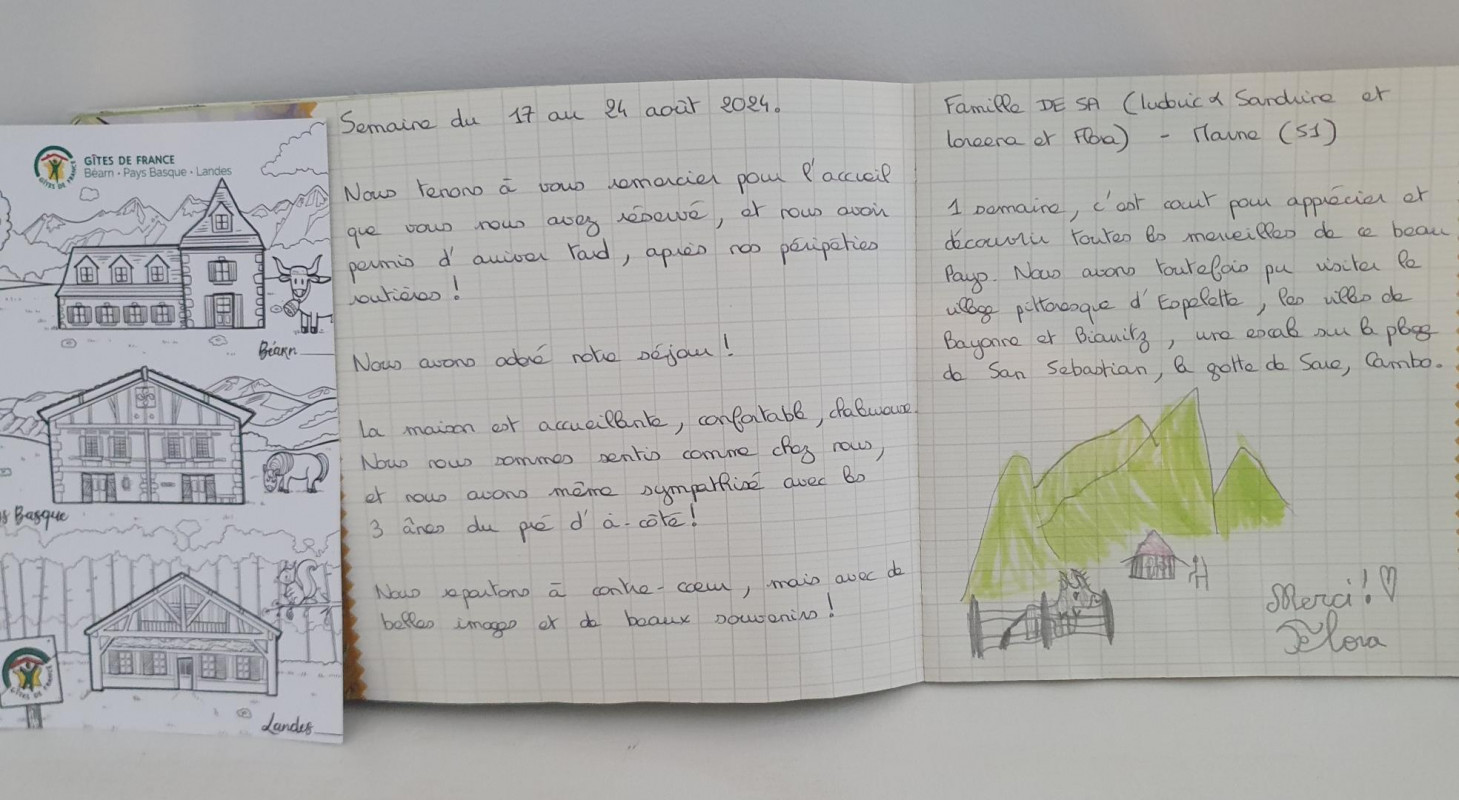 GÎTES DE FRANCE
Béarn • Pays Basque • Landes
Béarn
Basque
Landes
GÎTES DE FRANCE
Semaine du 17 au 24 août 2024.
Nous tenons à vous remercier pour l'accueil
que vous nous avez réservé, et nous avoir
permis d'arriver tard, après nos péripéties
routières !
Nous avons adoré notre séjour !
La maison est accueillante, confortable, chaleureuse.
Nous nous sommes sentis comme chez nous,
et nous avons même sympathisé avec les
3 ânes du pré d'à-côté !
Nous repartons à contre-cœur, mais avec de
belles images et de beaux souvenirs !
Famille DE SA (Ludovic & Sandrine et
et Flora) - Marne (51)
1 semaine, c'est court pour apprécier et
découvrir toutes les merveilles de ce beau
Pays. Nous avons toutefois pu visiter le
village pittoresque d'Espelette, les villes de
Bayonne et Biarritz, une escale sur la plage
de San Sebastian, la grotte de Sare, Cambo.
Merci ! ♡
Flora